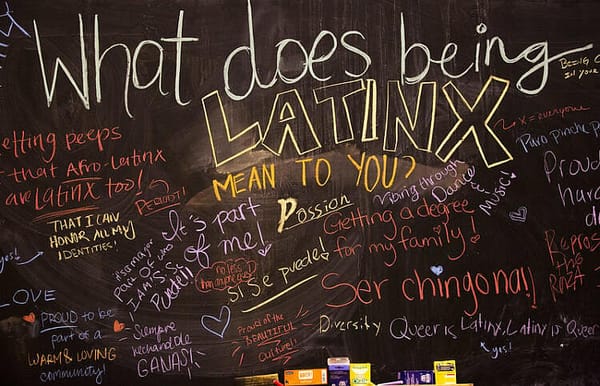 What does being
LATINX
MEAN TO YOU?
BEING
IN YOUR
X = everyone
Para
Proud
hard
etting peeps
that Afro-Latinx
are LATINX too!
PERIODT!
THAT I CAN
HONOR ALL MY
IDENTITIES!
yes!
It's part
of me!
It's a major
part OF who
I AM
Sí Se
Puede!!
Passion
no less
than anyone else
Sí Se puede!
Vibing through
Dance &
Music!
Getting a degree
for my family!
Ser chingona!!
LOVE
PROUD to be
part of a
WARM & LOVING
community!
Siempre
hechandole
GANAS!
Proud of the
BEAUTIFUL
Culture!!
Diversity
Queer is Latinx, Latinx is Queer
yes!